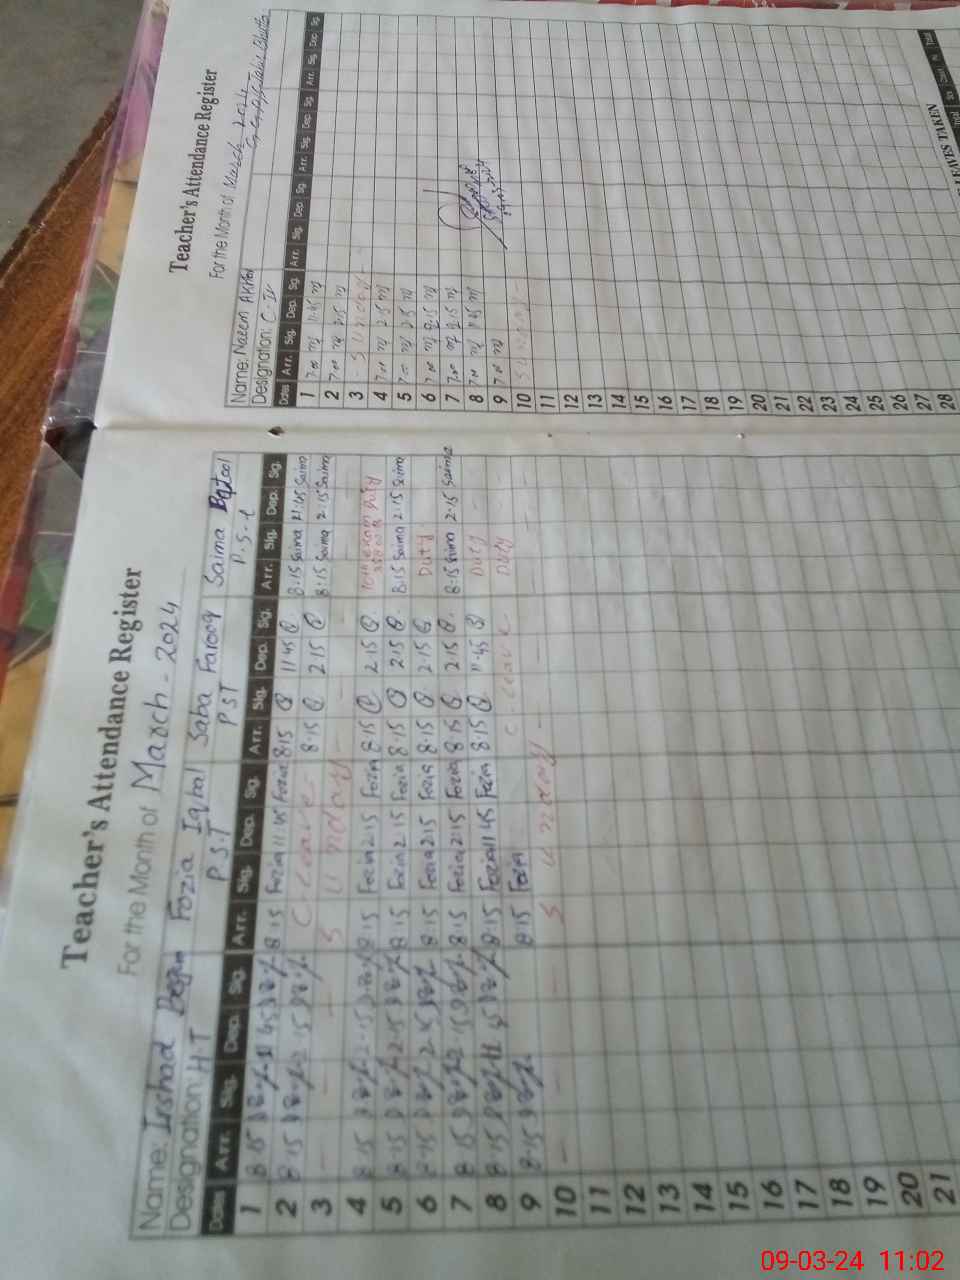 Teacher's Attendance Register
For the Month of March - 2024
Name: Irshad Begum Fozia Iqbal Saba Farooq Saima
Designation: H.T P.S.T PST P.S.T
Dates Arr. Sig. Dep. Sig. Arr. Sig. Dep. Sig. Arr. Sig. Dep. Sig. Arr. Sig. Dep. Sg.
1 8-15 11 45 8-15 Fozia 11 45 Fozia 8-15 11 45 8-15 Saima 11-45 Saima
2 8-15 2-15 C-leave 8-15 2 15 8-15 Saima 2-15 Saima
3 - - Sunday - -
4 8-15 2-15 8-15 Fozia 2-15 Fozia 8-15 2-15 Duty
5 8-15 2-15 8-15 Fozia 2 15 Fozia 8-15 2 15 8-15 Saima 2-15 Saima
6 8-15 2-15 8-15 Fozia 2 15 Fozia 8-15 2-15 Duty
7 8-15 2-15 8-15 Fozia 2-15 Fozia 8-15 2 15 8-15 Saima 2-15 Saima
8 8-15 11 45 8-15 Fozia 11 45 Fozia 8-15 11-45 Duty - -
9 8-15 8-15 Fozia C-leave Duty - -
10 - - Sunday - - -
11
12
13
14
15
16
17
18
19
20
21
Teacher's Attendance Register
For the Month of March - 2024
Name: Naeem
Designation: C-IV
Dates Arr. Sig. Dep. Sg. Arr. Sig. Dep. Sg. Arr. Sig. Dep. Sg. Arr. Sig. Dep. Sg.
1 7-00 11-45
2 7-00 2-15
3 - Sunday -
4 7-00 2-15
5 7-00 2-15
6 7-00 2-15
7 7-00 2-15
8 7-00 11-45
9 7-00
10 Sunday -
11
12
13
14
15
16
17
18
19
20
21
22
23
24
25
26
27
28
LEAVES TAKEN
Total
09-03-24 11:02